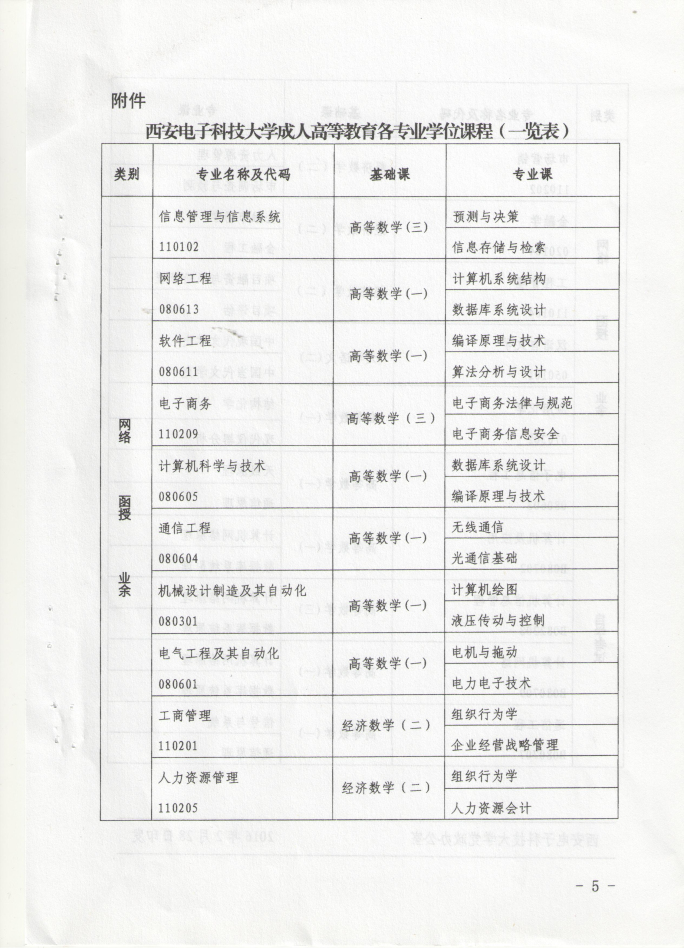 附件
西安电子科技大学成人高等教育各专业学位课程（一览表）
类别 专业名称及代码 基础课 专业课
网络
函授
业余
信息管理与信息系统
110102
高等数学(三)
预测与决策
信息存储与检索
网络工程
080613
高等数学(一)
计算机系统结构
数据库系统设计
软件工程
080611
高等数学(一)
编译原理与技术
算法分析与设计
电子商务
110209
高等数学（三）
电子商务法律与规范
电子商务信息安全
计算机科学与技术
080605
高等数学(一)
数据库系统设计
编译原理与技术
通信工程
080604
高等数学(一)
无线通信
光通信基础
机械设计制造及其自动化
080301
高等数学(一)
计算机绘图
液压传动与控制
电气工程及其自动化
080601
高等数学(一)
电机与拖动
电力电子技术
工商管理
110201
经济数学（二）
组织行为学
企业经营战略管理
人力资源管理
110205
经济数学（二）
组织行为学
人力资源会计
- 5 -